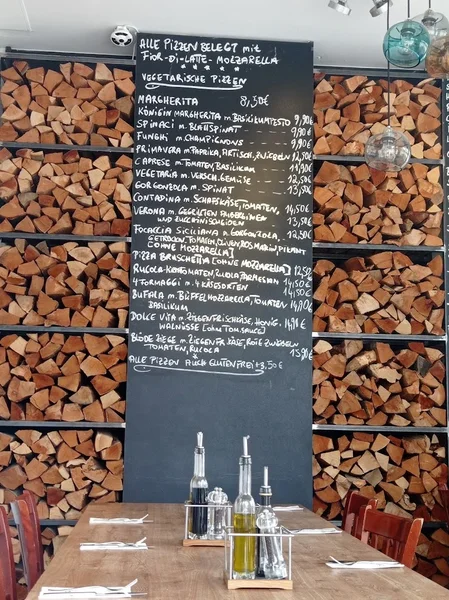 ALLE PIZZEN BELEGT mit
FIOR-DI-LATTE-MOZZARELLA
* * * * *
VEGETARISCHE PIZZEN
MARGHERITA 8,50€
KÖNIGIN MARGHERITA m. BASILIKUMPESTO 9,90€
SPINACI m. BLATTSPINAT 9,90€
FUNGHI m. CHAMPIGNONS 9,90€
PRIMAVERA m. PAPRIKA, ARTISCH., ZWIEBELN 12,50€
CAPRESE m. TOMATEN, BASILIKUM 11,90€
VEGETARIA m. VERSCH. GEMÜSE 12,50€
GORGONZOLA m. SPINAT 13,50€
CONTADINA m. SCHAFSKÄSE, TOMATEN, 14,50€
VERONA m. GEGRILLTEN AUBERGINEN 13,50€
UND ZUCCHINISCHEIBEN
FOCACCIA SICILIANA m. GORGONZOLA, 12,50€
GETROCKN. TOMATEN, OLIVEN, ROSMARIN, PIKANT
[OHNE MOZZARELLA]
PIZZA BRUSCHETTA [OHNE MOZZARELLA] 12,50
RUCOLA-KIRSCHTOMATEN, RUCOLA, PARMESAN 14,50€
4 FORMAGGI m. 4 KÄSESORTEN 14,50€
BUFALA m. BÜFFELMOZZARELLA, TOMATEN 14,90€
BASILIKUM
DOLCE VITA m. ZIEGENFRISCHKÄSE, HONIG, 14,90€
WALNÜSSE [OHNE TOM.SAUCE]
BLÖDE ZIEGE m. ZIEGENFR.KÄSE, ROTE ZWIEBELN 15,90€
TOMATEN, RUCOLA
ALLE PIZZEN AUCH GLUTENFREI +3,50€